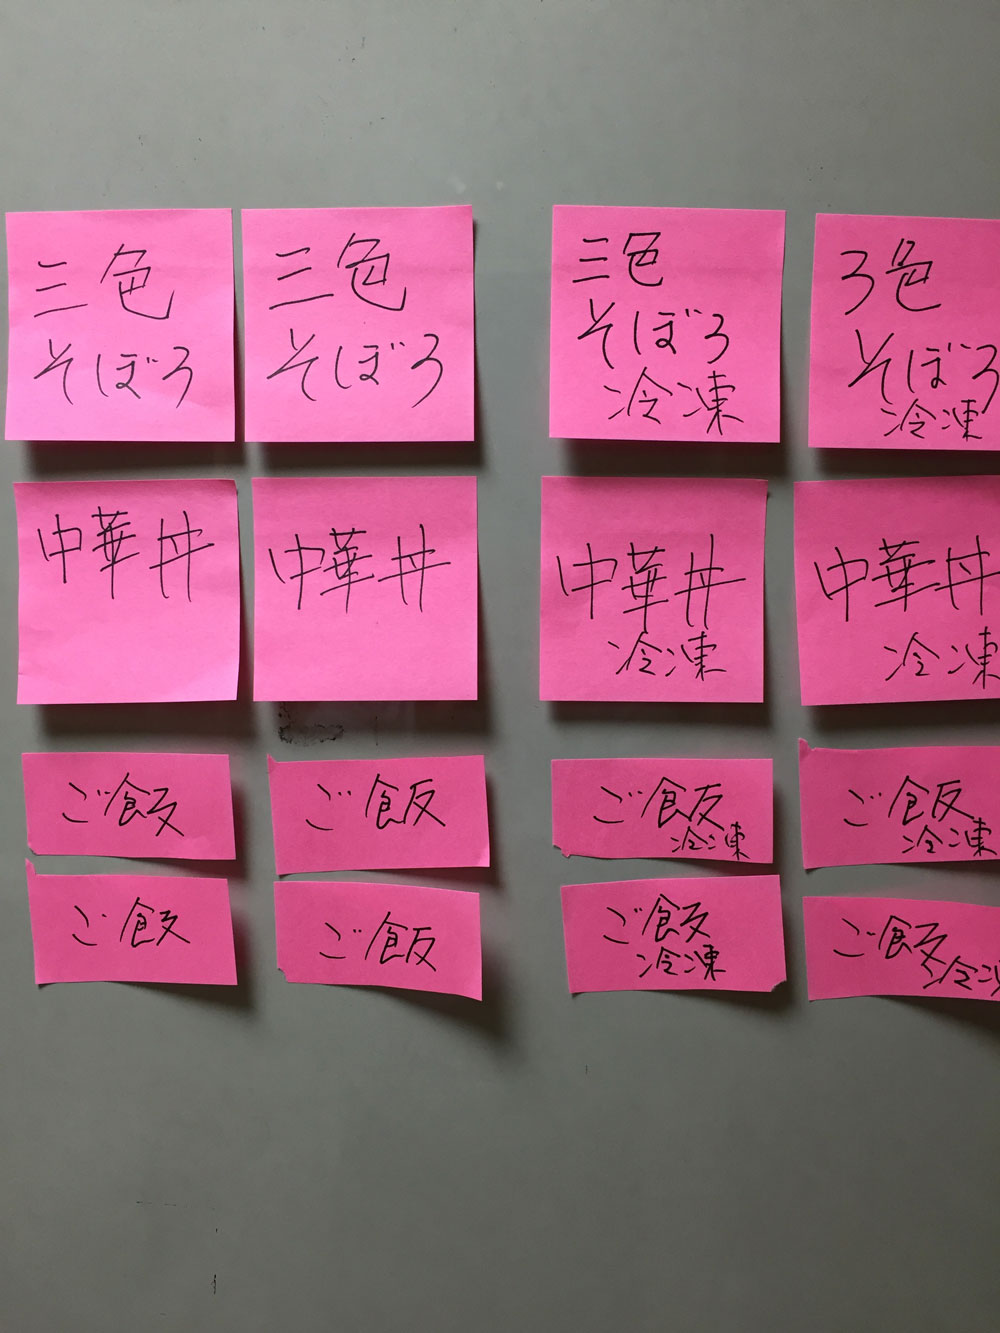 三色
そぼろ
三色
そぼろ
三色
そぼろ
冷凍
3色
そぼろ
冷凍
中華丼
中華丼
中華丼
冷凍
中華丼
冷凍
ご飯
ご飯
ご飯
冷凍
ご飯
冷凍
ご飯
ご飯
ご飯
冷凍
ご飯
冷凍